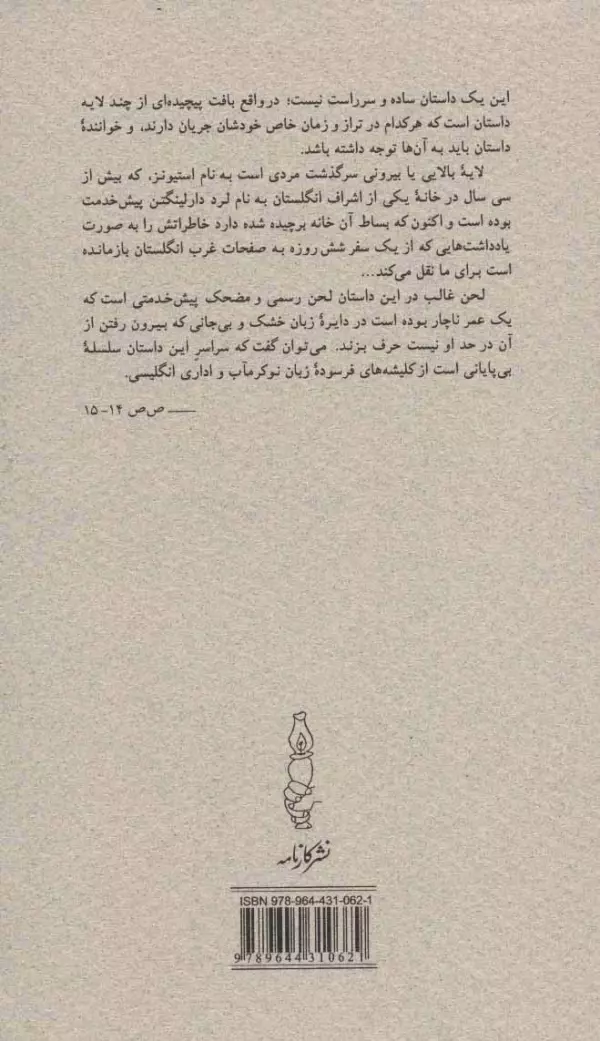 این یک داستان ساده و سرراست نیست؛ درواقع بافت پیچیده‌ای از چند لایه
داستان است که هرکدام در تراز و زمان خاص خودشان جریان دارند، و خوانندهٔ
داستان باید به آن‌ها توجه داشته باشد.
لایهٔ بالایی یا بیرونی سرگذشت مردی است به نام استیونز، که بیش از
سی سال در خانهٔ یکی از اشراف انگلستان به نام لرد دارلینگتن پیش‌خدمت
بوده است و اکنون که بساط آن خانه برچیده شده دارد خاطراتش را به صورت
یادداشت‌هایی که از یک سفر شش‌روزه به صفحات غرب انگلستان بازمانده
است برای ما نقل می‌کند...
لحن غالب در این داستان لحن رسمی و مضحک پیش‌خدمتی است که
یک عمر ناچار بوده است در دایرهٔ زبان خشک و بی‌جانی که بیرون رفتن از
آن در حد او نیست حرف بزند. می‌توان گفت که سراسرِ این داستان سلسلهٔ
بی‌پایانی است از کلیشه‌های فرسودهٔ زبان نوکرمآب و اداری انگلیسی.
—— ص‌ص ۱۴-۱۵
نشر کارنامه
ISBN 978-964-431-062-1
9 789644 310621